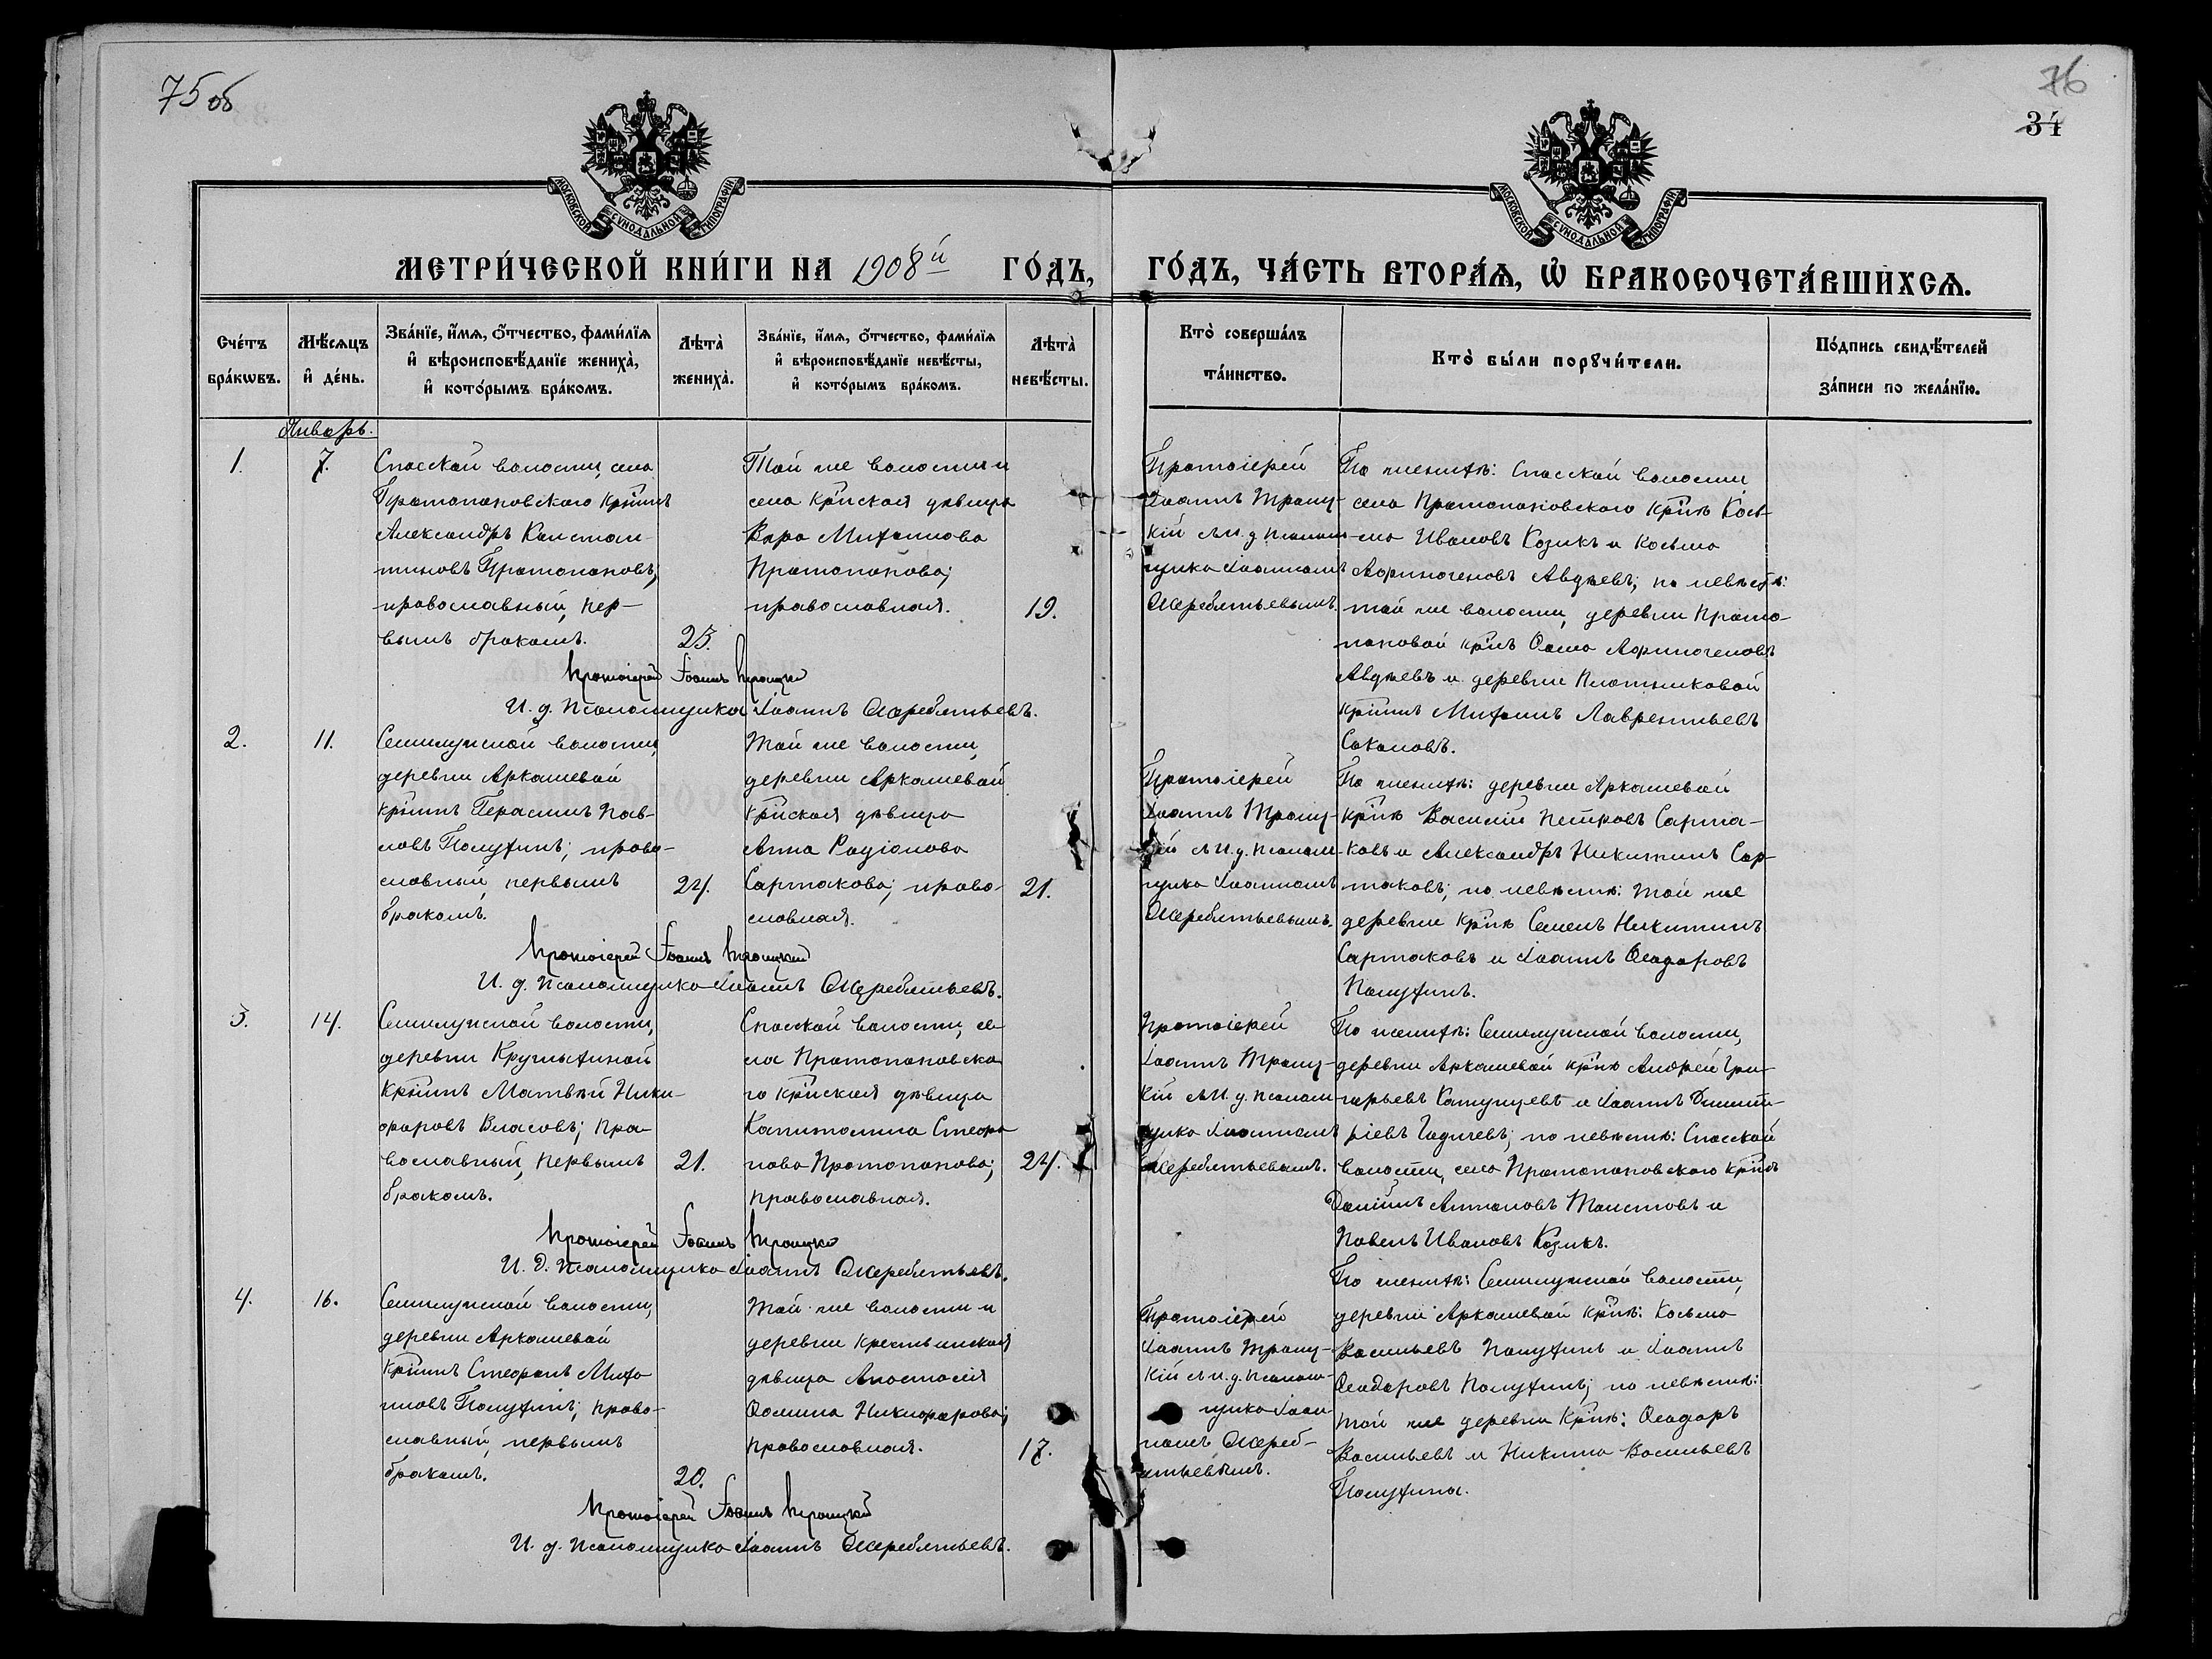 75 об
76
34
МОСКОВСКОЙ СУНОДАЛЬНОЙ ТИПОГРАФІИ
МОСКОВСКОЙ СУНОДАЛЬНОЙ ТИПОГРАФІИ
МЕТРИ́ЧЕСКОЙ КНИ́ГИ НА 1908й ГО́ДЪ,
ГО́ДЪ, ЧА́СТЬ ВТОРА́Ѧ, Ѡ҆ БРАКОСОЧЕТА́ВШИХСѦ.
Сче́тъ бра́кѡвъ.
Мѣ́сѧцъ и҆ де́нь.
Зва́нїе, и҆́мѧ, ѻ҆́тчество, фами́лїѧ
и҆ вѣроисповѣ́данїе жениха̀,
и҆ кото́рымъ бра́комъ.
Лѣта̀ жениха̀.
Зва́нїе, и҆́мѧ, ѻ҆́тчество, фами́лїѧ
и҆ вѣроисповѣ́данїе невѣ́сты,
и҆ кото́рымъ бра́комъ.
Лѣта̀ невѣ́сты.
Кто̀ соверша́лъ та́инство.
Кто̀ бы́ли порꙋчи́тели.
По́дпись свидѣ́телей за́писи по жела́нїю.
Январь.
1.
7.
Спасской волости, села
Протопоповского кр̃нинъ
Александръ Констан-
тиновъ Протопоповъ;
православный, пер-
вымъ бракомъ.
25.
Той же волости и
села кр̃нская дѣвица
Вѣра
Протопопова;
православная.
19.
Протоіерей
Іоаннъ Троиц-
кій съ И. д. псалом-
щика Іоанномъ
Жеребятьевымъ.
По женихѣ: Спасской волости
села Протопоповского кр̃не Кось-
ма Иванов Козикъ и Косьма
Авдѣевъ; по невѣстѣ:
той же волости, деревни Прото-
поповой кр̃нъ Ѳома
Авдѣевъ и деревни Плотниковой
кр̃нинъ Лаврентьевъ
Соколовъ.
Протоіерей Іоаннъ Троицкій
И. д. псаломщика Іоаннъ Жеребятьевъ.
2.
11.
Семилужной волости,
деревни Аркашевой
кр̃нинъ Герасимъ Пав-
ловъ Полухинъ; право-
славный, первымъ
бракомъ.
24.
Той же волости,
деревни Аркашевой
кр̃нская дѣвица
Анна Родіонова
Сартакова; право-
славная.
21.
Протоіерей
Іоаннъ Троиц-
кій съ И. д. псалом-
щика Іоанномъ
Жеребятьевымъ.
По женихѣ: деревни Аркашевой
кр̃не Василій Петровъ Сарта-
ковъ и Александръ Никитинъ Сар-
таковъ; по невѣстѣ: той же
деревни кр̃не Семенъ Никитинъ
Сартаковъ и Іоаннъ Ѳеодоровъ
Полухинъ.
Протоіерей Іоаннъ Троицкій
И. д. псаломщика Іоаннъ Жеребятьевъ.
3.
14.
Семилужной волости,
деревни Круглыхиной
кр̃нинъ Матвѣй Ники-
форовъ Власовъ; пра-
вославный, первымъ
бракомъ.
21.
Спасской волости, се-
ла Протопоповска-
го кр̃нская дѣвица
Капитолина Стефа-
нова Протопопова;
православная.
24.
Протоіерей
Іоаннъ Троиц-
кій съ И. д. псалом-
щика Іоанномъ
Жеребятьевымъ.
По женихѣ: Семилужной волости,
деревни Аркашевой кр̃не Андрей Гри-
горьевъ и Іоаннъ Димит-
ріевъ по невѣстѣ: Спасской
волости, села Протопоповского кр̃не
Даніилъ Антоновъ Толстовъ и
Павелъ Ивановъ Козикъ.
Протоіерей Іоаннъ Троицкій
И. д. псаломщика Іоаннъ Жеребятьевъ.
4.
16.
Семилужной волости,
деревни Аркашевой
кр̃нинъ Стефанъ
Полухинъ; право-
славный, первымъ
бракомъ.
20.
Той же волости и
деревни крестьянская
дѣвица Анастасія
Ѳомина Никифорова;
православная.
17.
Протоіерей
Іоаннъ Троиц-
кій съ и. д. псалом-
щика Іоан-
номъ Жереб-
ятьевымъ.
По женихѣ: Семилужной волости,
деревни Аркашевой кр̃не: Косьма
Васильевъ Полухинъ и Іоаннъ
Ѳеодоровъ Полухинъ; по невѣстѣ:
той же деревни кр̃не: Ѳеодоръ
Васильевъ и Никита Васильевъ
Полухины.
Протоіерей Іоаннъ Троицкій
И. д. псаломщика Іоаннъ Жеребятьевъ.